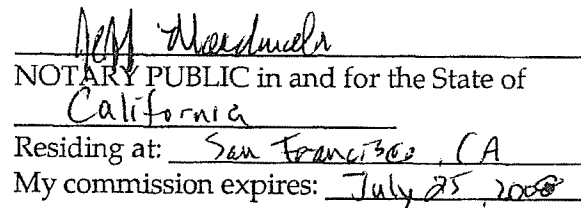 Jeff
NOTARY PUBLIC in and for the State of
California
Residing at: San Francisco, CA
My commission expires: July 25, 2008